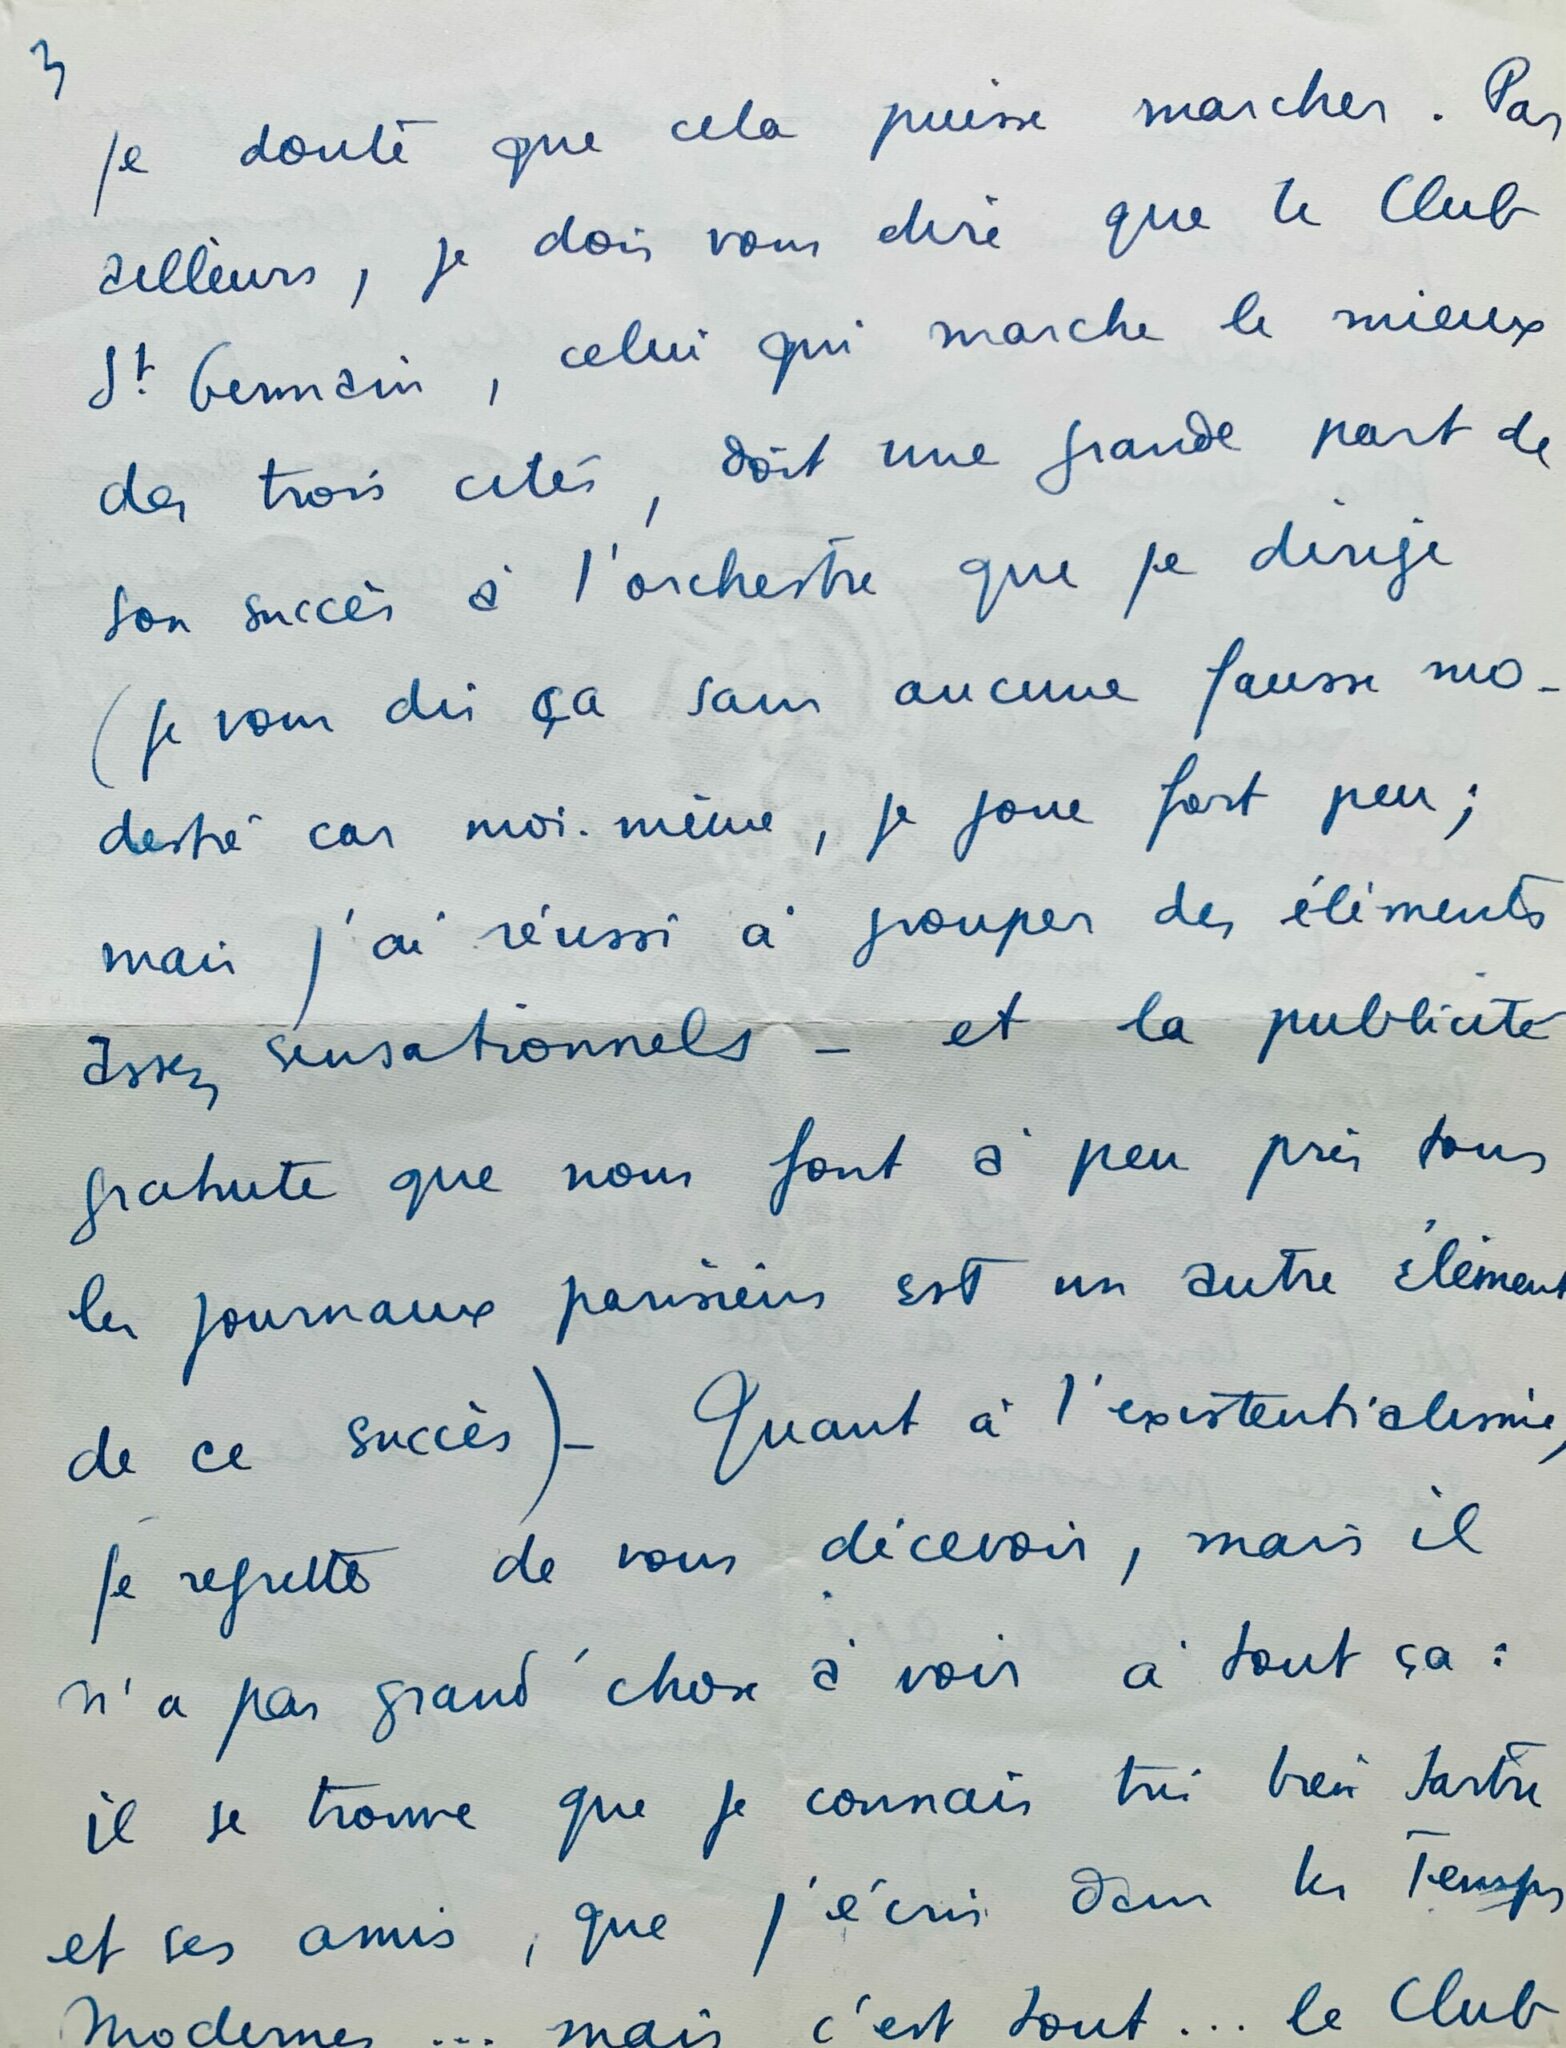 3
je doute que cela puisse marcher. Par
ailleurs, je dois vous dire que le Club
St Germain, celui qui marche le mieux
des trois cités, doit une grande part de
son succès à l'orchestre que je dirige
(je vous dis ça sans aucune fausse mo-
destie car moi-même, je joue fort peu;
mais j'ai réussi à grouper des éléments
assez sensationnels - et la publicité
gratuite que nous font à peu près tous
les journaux parisiens est un autre élément
de ce succès) - Quant à l'existentialisme,
je regrette de vous décevoir, mais il
n'a pas grand'chose à voir à tout ça :
il se trouve que je connais très bien Sartre
et ses amis, que j'écris dans les Temps
Modernes ... mais c'est tout... le Club